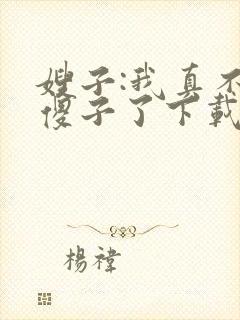 嫂子:我真不
傻子了下載
楊禕